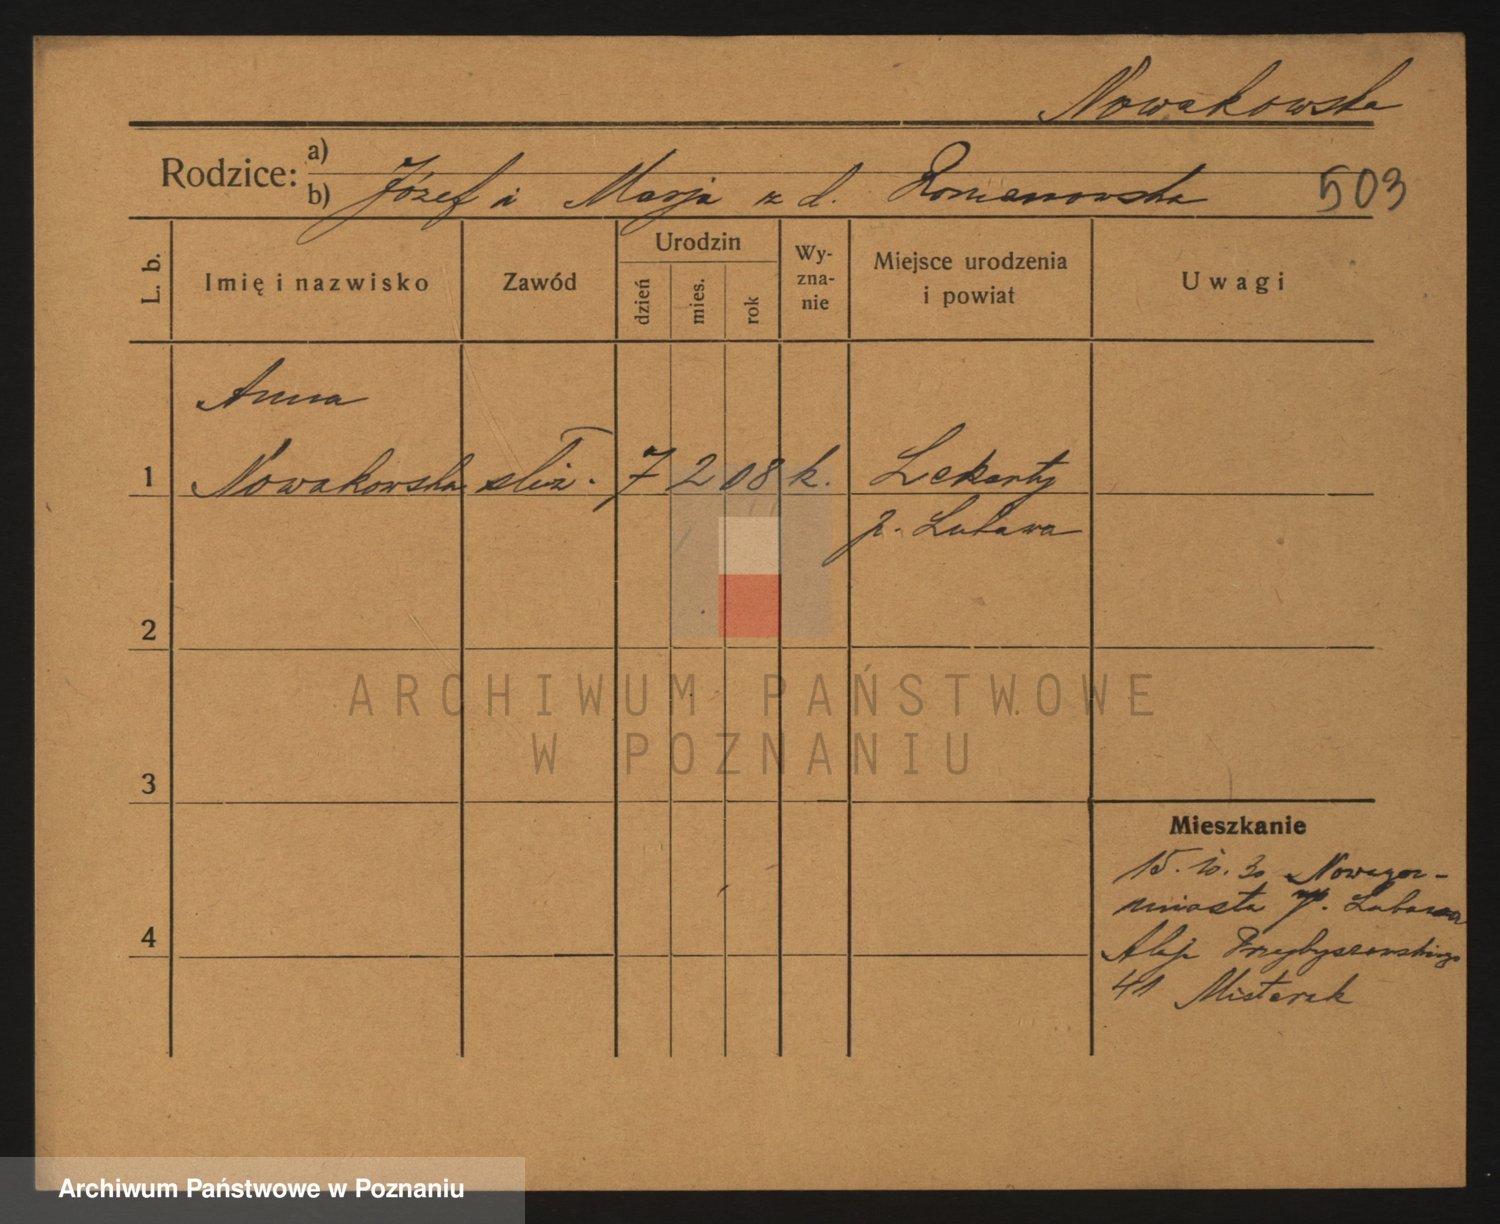 Nowakowska
Rodzice: a)
b) Józef i Marja z d. Romanowska 503
L. b. Imię i nazwisko Zawód Urodzin dzień mies. rok Wyznanie Miejsce urodzenia i powiat Uwagi
Anna
1 Nowakowska służ. 7 2 08 k. Lekarty
p. Lubawa
2
ARCHIWUM PAŃSTWOWE
W POZNANIU
3
Mieszkanie
15. 10. 30 Nowego-
miasta p. Lubawa
4 Aleje Przybyszewskiego
41 Misterek
Archiwum Państwowe w Poznaniu